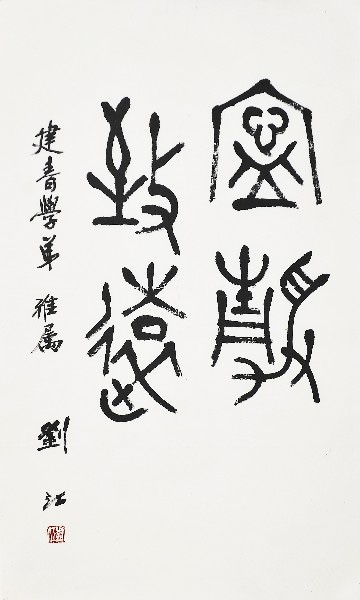 寧靜
致遠
建青學弟 雅属
劉江